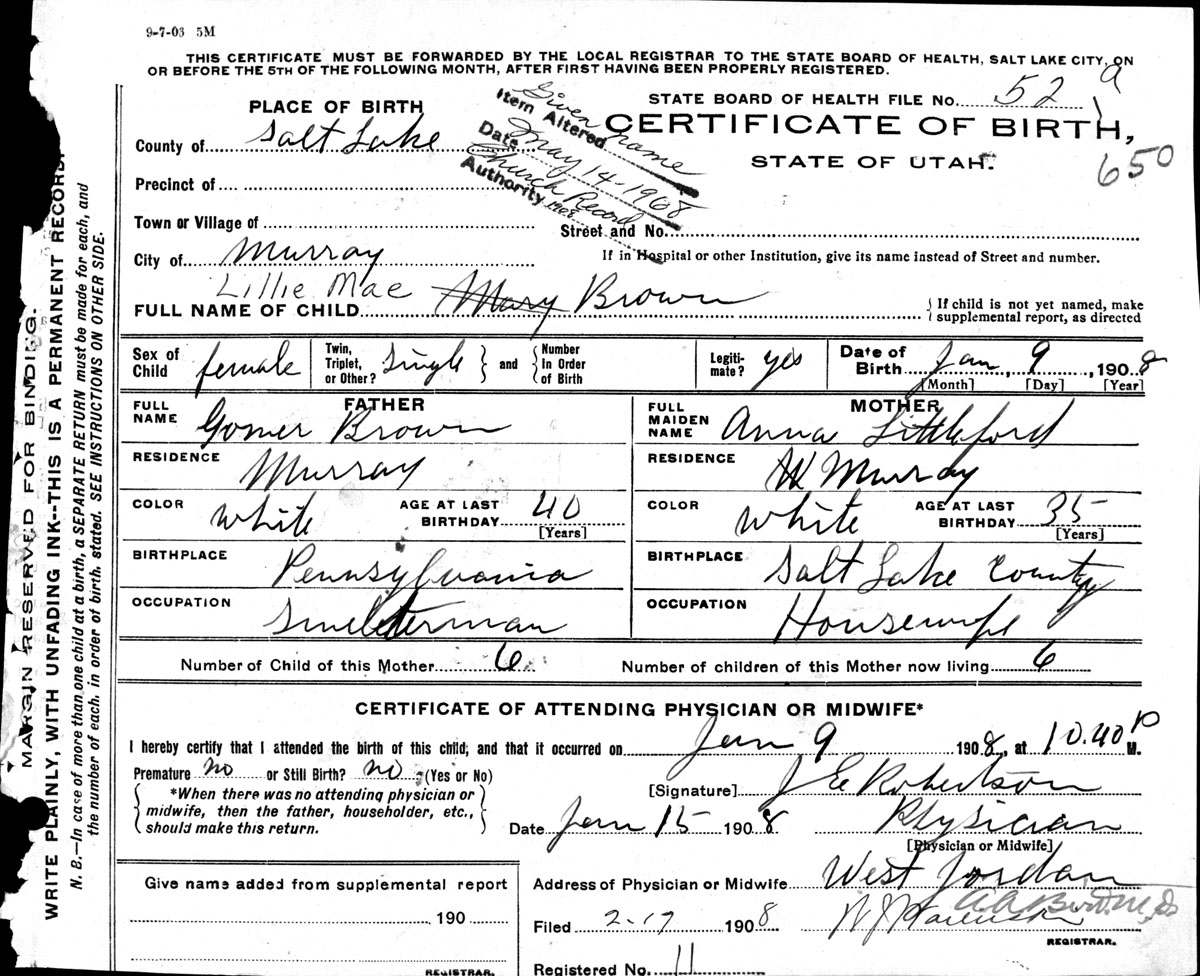 9-7-03 5M
THIS CERTIFICATE MUST BE FORWARDED BY THE LOCAL REGISTRAR TO THE STATE BOARD OF HEALTH, SALT LAKE CITY, ON
OR BEFORE THE 5TH OF THE FOLLOWING MONTH, AFTER FIRST HAVING BEEN PROPERLY REGISTERED.
STATE BOARD OF HEALTH FILE No. 52 9
CERTIFICATE OF BIRTH,
STATE OF UTAH.
650
Item Altered Given name
Date May 14-1968
Authority Church Record
PLACE OF BIRTH
County of Salt Lake
Precinct of
Town or Village of
Street and No.
City of Murray
If in Hospital or other Institution, give its name instead of Street and number.
Lillie Mae
FULL NAME OF CHILD Mary Brown
{ If child is not yet named, make
supplemental report, as directed
Sex of Child female Twin, Triplet, or Other? Single } and { Number In Order of Birth Legiti-mate? yes Date of Birth Jan, 9, 1908
[Month] [Day] [Year]
FATHER
FULL NAME Gomer Brown
RESIDENCE Murray
COLOR White AGE AT LAST BIRTHDAY 40
[Years]
BIRTHPLACE Pennsylvania
OCCUPATION Smelterman
MOTHER
FULL MAIDEN NAME Anna Littleford
RESIDENCE Murray
COLOR White AGE AT LAST BIRTHDAY 35
[Years]
BIRTHPLACE Salt Lake County
OCCUPATION Housewife
Number of Child of this Mother 6 Number of children of this Mother now living 6
CERTIFICATE OF ATTENDING PHYSICIAN OR MIDWIFE*
I hereby certify that I attended the birth of this child, and that it occurred on Jan 9 1908, at 10.40 P M.
Premature no or Still Birth? no (Yes or No)
{ *When there was no attending physician or
midwife, then the father, householder, etc.,
should make this return. }
[Signature] J E Robertson
Date Jan 15 1908 Physician
[Physician or Midwife]
Address of Physician or Midwife West Jordan
Filed 2-17 1908
REGISTRAR.
Registered No. 11
Give name added from supplemental report
190
REGISTRAR.
MARGIN RESERVED FOR BINDING.
WRITE PLAINLY, WITH UNFADING INK--THIS IS A PERMANENT RECORD.
N. B.—In case of more than one child at a birth, a SEPARATE RETURN must be made for each, and
the number of each, in order of birth, stated. SEE INSTRUCTIONS ON OTHER SIDE.